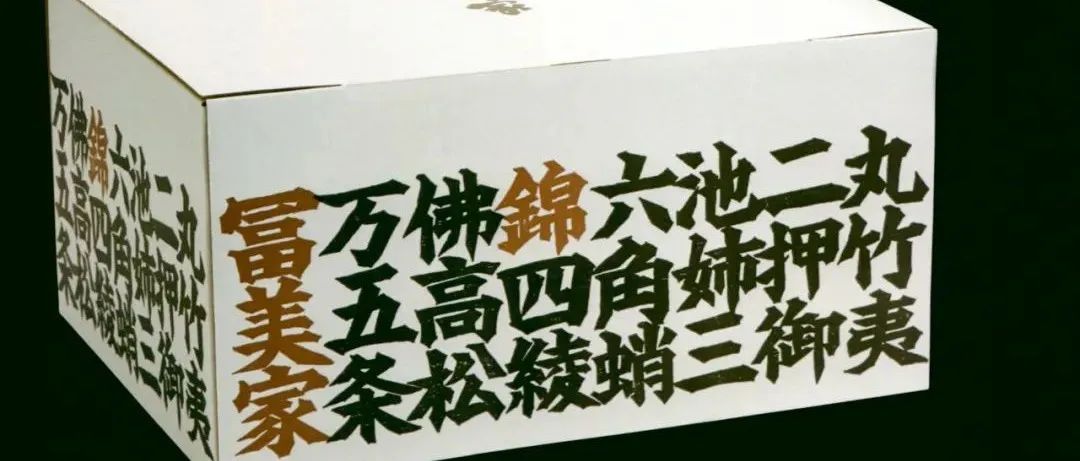 丸竹夷
二押御
池姉三
六角蛸
錦四綾
佛高松
万五条
冨美家
丸竹夷
二押御
池姉三
六角蛸
錦四綾
佛高松
万五条